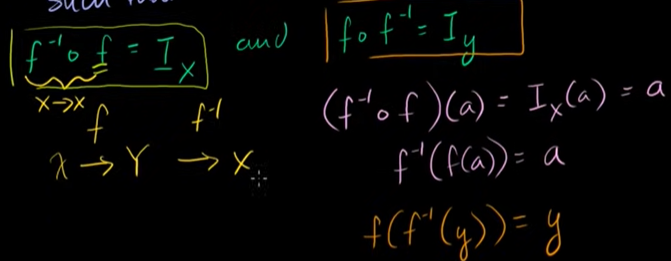 such
f⁻¹ ∘ f = I_X and f ∘ f⁻¹ = I_y
X→X
f f⁻¹
X → Y → X
(f⁻¹ ∘ f)(a) = I_X(a) = a
f⁻¹(f(a)) = a
f(f⁻¹(y)) = y